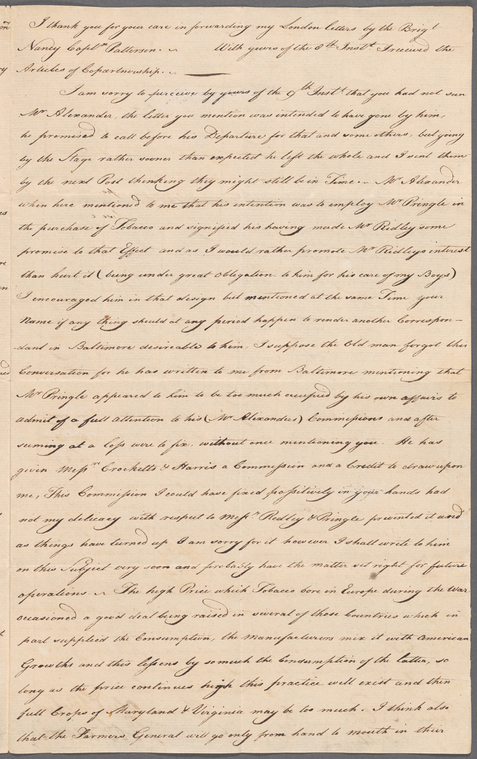 I thank you for your care in forwarding my London letters by the Brigt
Nancy Captn Patterson. With yours of the 8th Inst I received the
Articles of Copartnership.
I am sorry to perceive by yours of the 9th Inst that you had not seen
Mr Alexander, the letter you mention was intended to have gone by him,
he promised to call before his Departure for that and some others, but going
by the Stage rather sooner than expected he left the whole and I sent them
by the next Post thinking they might still be in Time. Mr Alexander
when here mentioned to me that his intention was to employ Mr Pringle in
the purchase of Tobacco and signified his having made Mr Ridley some
promise to that Effect and as I would rather promote Mr Ridleys interest
than hurt it (being under great obligation to him for his care of my Boys)
I encouraged him in that design but mentioned at the same Time your
Name if any thing should at any period happen to render another Correspon-
dant in Baltimore desireable to him. I suppose the Old man forgot this
Conversation for he has written to me from Baltimore mentioning that
Mr Pringle appeared to him to be too much occupied by his own affairs to
admit of a full attention to his (Mr Alexanders) Commissions and after
seeming at a loss were to fix, without once mentioning you. He has
given Messrs Crocketts & Harris a Commission and a Credit to draw upon
me, This Commission I could have fixed positively in your hands had
not my delicacy with respect to Messrs Ridley & Pringle prevented it and
as things have turned up I am sorry for it however I shall write to him
on this Subject very soon and probably have the matter set right for future
operations. The high Price which Tobacco bore in Europe during the War
occasioned a good deal being raised in several of those Countries which in
part supplied the Consumption, the Manufacturers mix it with American
Growths and this lessens by so much the Consumption of the latter, so
long as the price continues high this practice will exist and then
full Crops of Maryland & Virginia may be too much. I think also
that the Farmers General will go only from hand to mouth in their